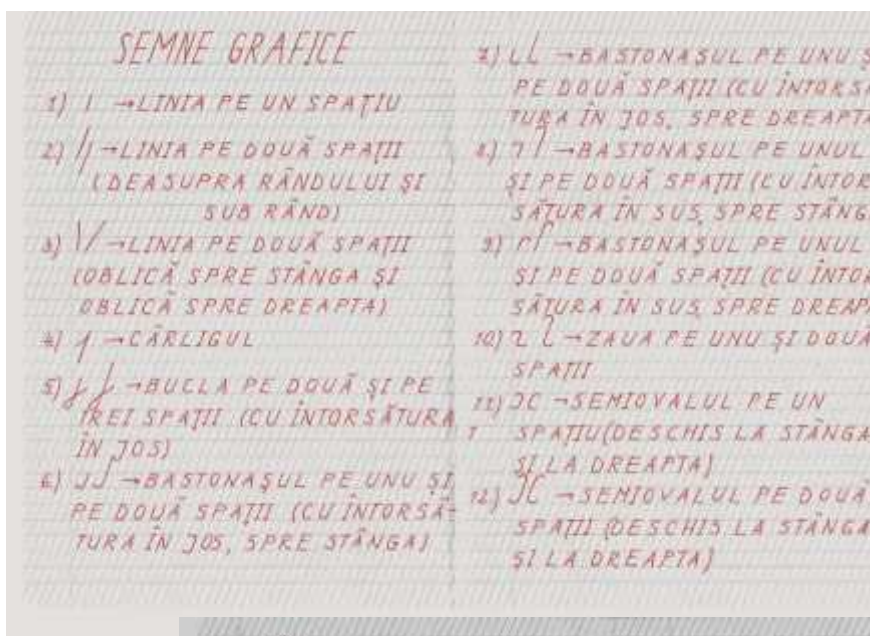 SEMNE GRAFICE
1) → LINIA PE UN SPAȚIU
2) → LINIA PE DOUĂ SPAȚII
(DEASUPRA RÂNDULUI ȘI
SUB RÂND)
3) → LINIA PE DOUĂ SPAȚII
(OBLICĂ SPRE STÂNGA ȘI
OBLICĂ SPRE DREAPTA)
4) → CÂRLIGUL
5) → BUCLA PE DOUĂ ȘI PE
TREI SPAȚII (CU ÎNTORSĂTURA
ÎN JOS)
6) → BASTONAȘUL PE UNU ȘI
PE DOUĂ SPAȚII (CU ÎNTORSĂ-
TURA ÎN JOS, SPRE STÂNGA)
7) → BASTONAȘUL PE UNU Ș
PE DOUĂ SPAȚII (CU ÎNTORSĂ
TURA ÎN JOS, SPRE DREAPTA
8) → BASTONAȘUL PE UNUL
ȘI PE DOUĂ SPAȚII (CU ÎNTOR
SĂTURA ÎN SUS, SPRE STÂNG
9) → BASTONAȘUL PE UNUL
ȘI PE DOUĂ SPAȚII (CU ÎNTOR
SĂTURA ÎN SUS, SPRE DREAP
10) → ZAUA PE UNU ȘI DOUĂ
SPAȚII
11) → SEMIOVALUL PE UN
SPAȚIU (DESCHIS LA STÂNGA
ȘI LA DREAPTA)
12) → SEMIOVALUL PE DOUĂ
SPAȚII (DESCHIS LA STÂNGA
ȘI LA DREAPTA)